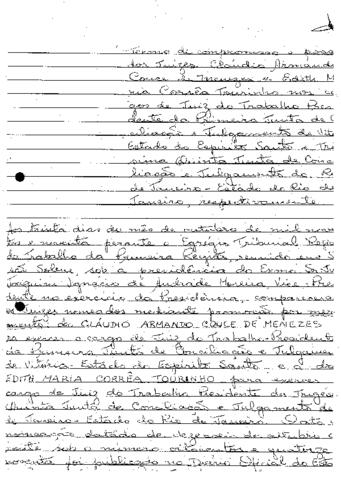 Termo de compromisso e posse
dos Juizes Cláudio Armando
Couce de Menezes e Edith Ma
ria Corrêa Tourinho nos car
gos de Juiz do Trabalho Presi
dente da Primeira Junta de C
ciliação e Julgamento de Vitó
Estado do Espírito Santo e Tri
sima Quinta Junta de Conci
liação e Julgamento do Ri
de Janeiro - Estado do Rio de
Janeiro, respectivamente
Aos trinta dias do mês de outubro de mil nove
tos e noventa perante o Egrégio Tribunal Regio
do Trabalho da Primeira Região, reunido em S
são Solene, sob a presidência do Exmo. Sr. Juiz
Joaquim Ignácio de Andrade Moreira, Vice-Presi
dente no exercício da Presidência, compareceram
os Juizes nomeados mediante promoção por mere
mento, dr. CLÁUDIO ARMANDO COUCE DE MENEZES
ra exercer o cargo de Juiz do Trabalho Presidente
da Primeira Junta de Conciliação e Julgamen
de Vitória - Estado do Espírito Santo e a dra
EDITH MARIA CORRÊA TOURINHO para exercer
cargo de Juiz do Trabalho Presidente da Trigési
Quinta Junta de Conciliação e Julgamento do
de Janeiro - Estado do Rio de Janeiro. O ato
nomeação datado de dezesseis de outubro c
sob o número oitocentos e quatorze
noventa foi publicado no Diário Oficial do Esta